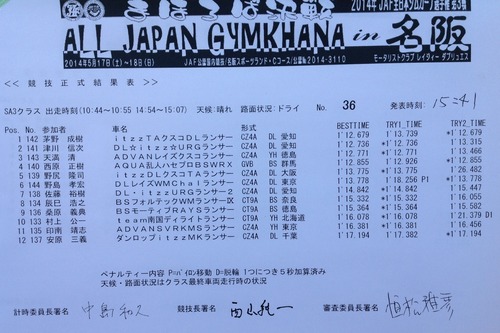 まほろば決戦 2014年 JAF全日本ジムカーナ選手権 第3戦
ALL JAPAN GYMKHANA in 名阪
2014年5月17日(土)～18日(日) JAF公認国内競技/名阪スポーツランド・Cコース/公認No2014-3110 モータリストクラブ レイティー ダブリュエス
<< 競技正式結果表 >>
SA3クラス 出走時刻(10:44～10:55 14:54～15:07) 天候:晴れ 路面状況:ドライ No. 36 発表時刻: 15:41
Pos. No. 参加者 車名 形式 BESTTIME TRY1_TIME TRY2_TIME
1 142 茅野 成樹 itzzTAクスコDLランサー CZ4A DL 愛知 1'12.679 1'13.739 *1'12.679
2 141 津川 信次 DL☆itzz☆URGランサー CZ4A DL 愛知 1'12.736 *1'12.736 1'13.311
3 143 天満 清 ADVANレイズクスコランサー CZ4A YH 徳島 1'12.771 *1'12.771 1'13.466
4 140 西原 正樹 AQUA乱人ハセプロBSWRX GVB BS 群馬 1'12.855 1'12.926 *1'12.855
5 139 野尻 隆司 itzzDLクスコTAランサー CZ4A DL 大阪 1'13.775 *1'13.775
6 144 野島 孝宏 DLレイズWMGhalランサー CZ4A DL 東京 1'13.778 1'18.256 P1 *1'13.778
7 138 佐藤 裕樹 DL・itzzURGランサー2 CZ4A DL 愛知 1'14.842 *1'14.842 1'15.447
8 134 辰巳 浩之 BSフォルテックWMランサーDX CT9A BS 奈良 1'15.332 *1'15.332 1'16.055
9 136 桑原 義典 BSモーティブRAYSランサー CT9A BS 徳島 1'15.364 *1'15.364 1'15.582
10 133 村上 公一 team南国ディライトランサー CT9A YH 北海道 1'16.078 *1'16.078 1'21.379 D1
11 135 印南 靖志 ADVANSVRKMSランサー CZ4A YH 東京 1'16.381 *1'16.381 1'16.456
12 137 安原 三義 ダンロップitzzMKランサー CZ4A DL 千葉 1'17.194 *1'17.194
ペナルティー内容 P=パイロン移動 D=脱輪 1つにつき5秒加算済み
天候・路面状況はクラス最終車両走行時の状況
計時委員長署名 中島和久 競技長署名 審査委員長署名 植松雅彦